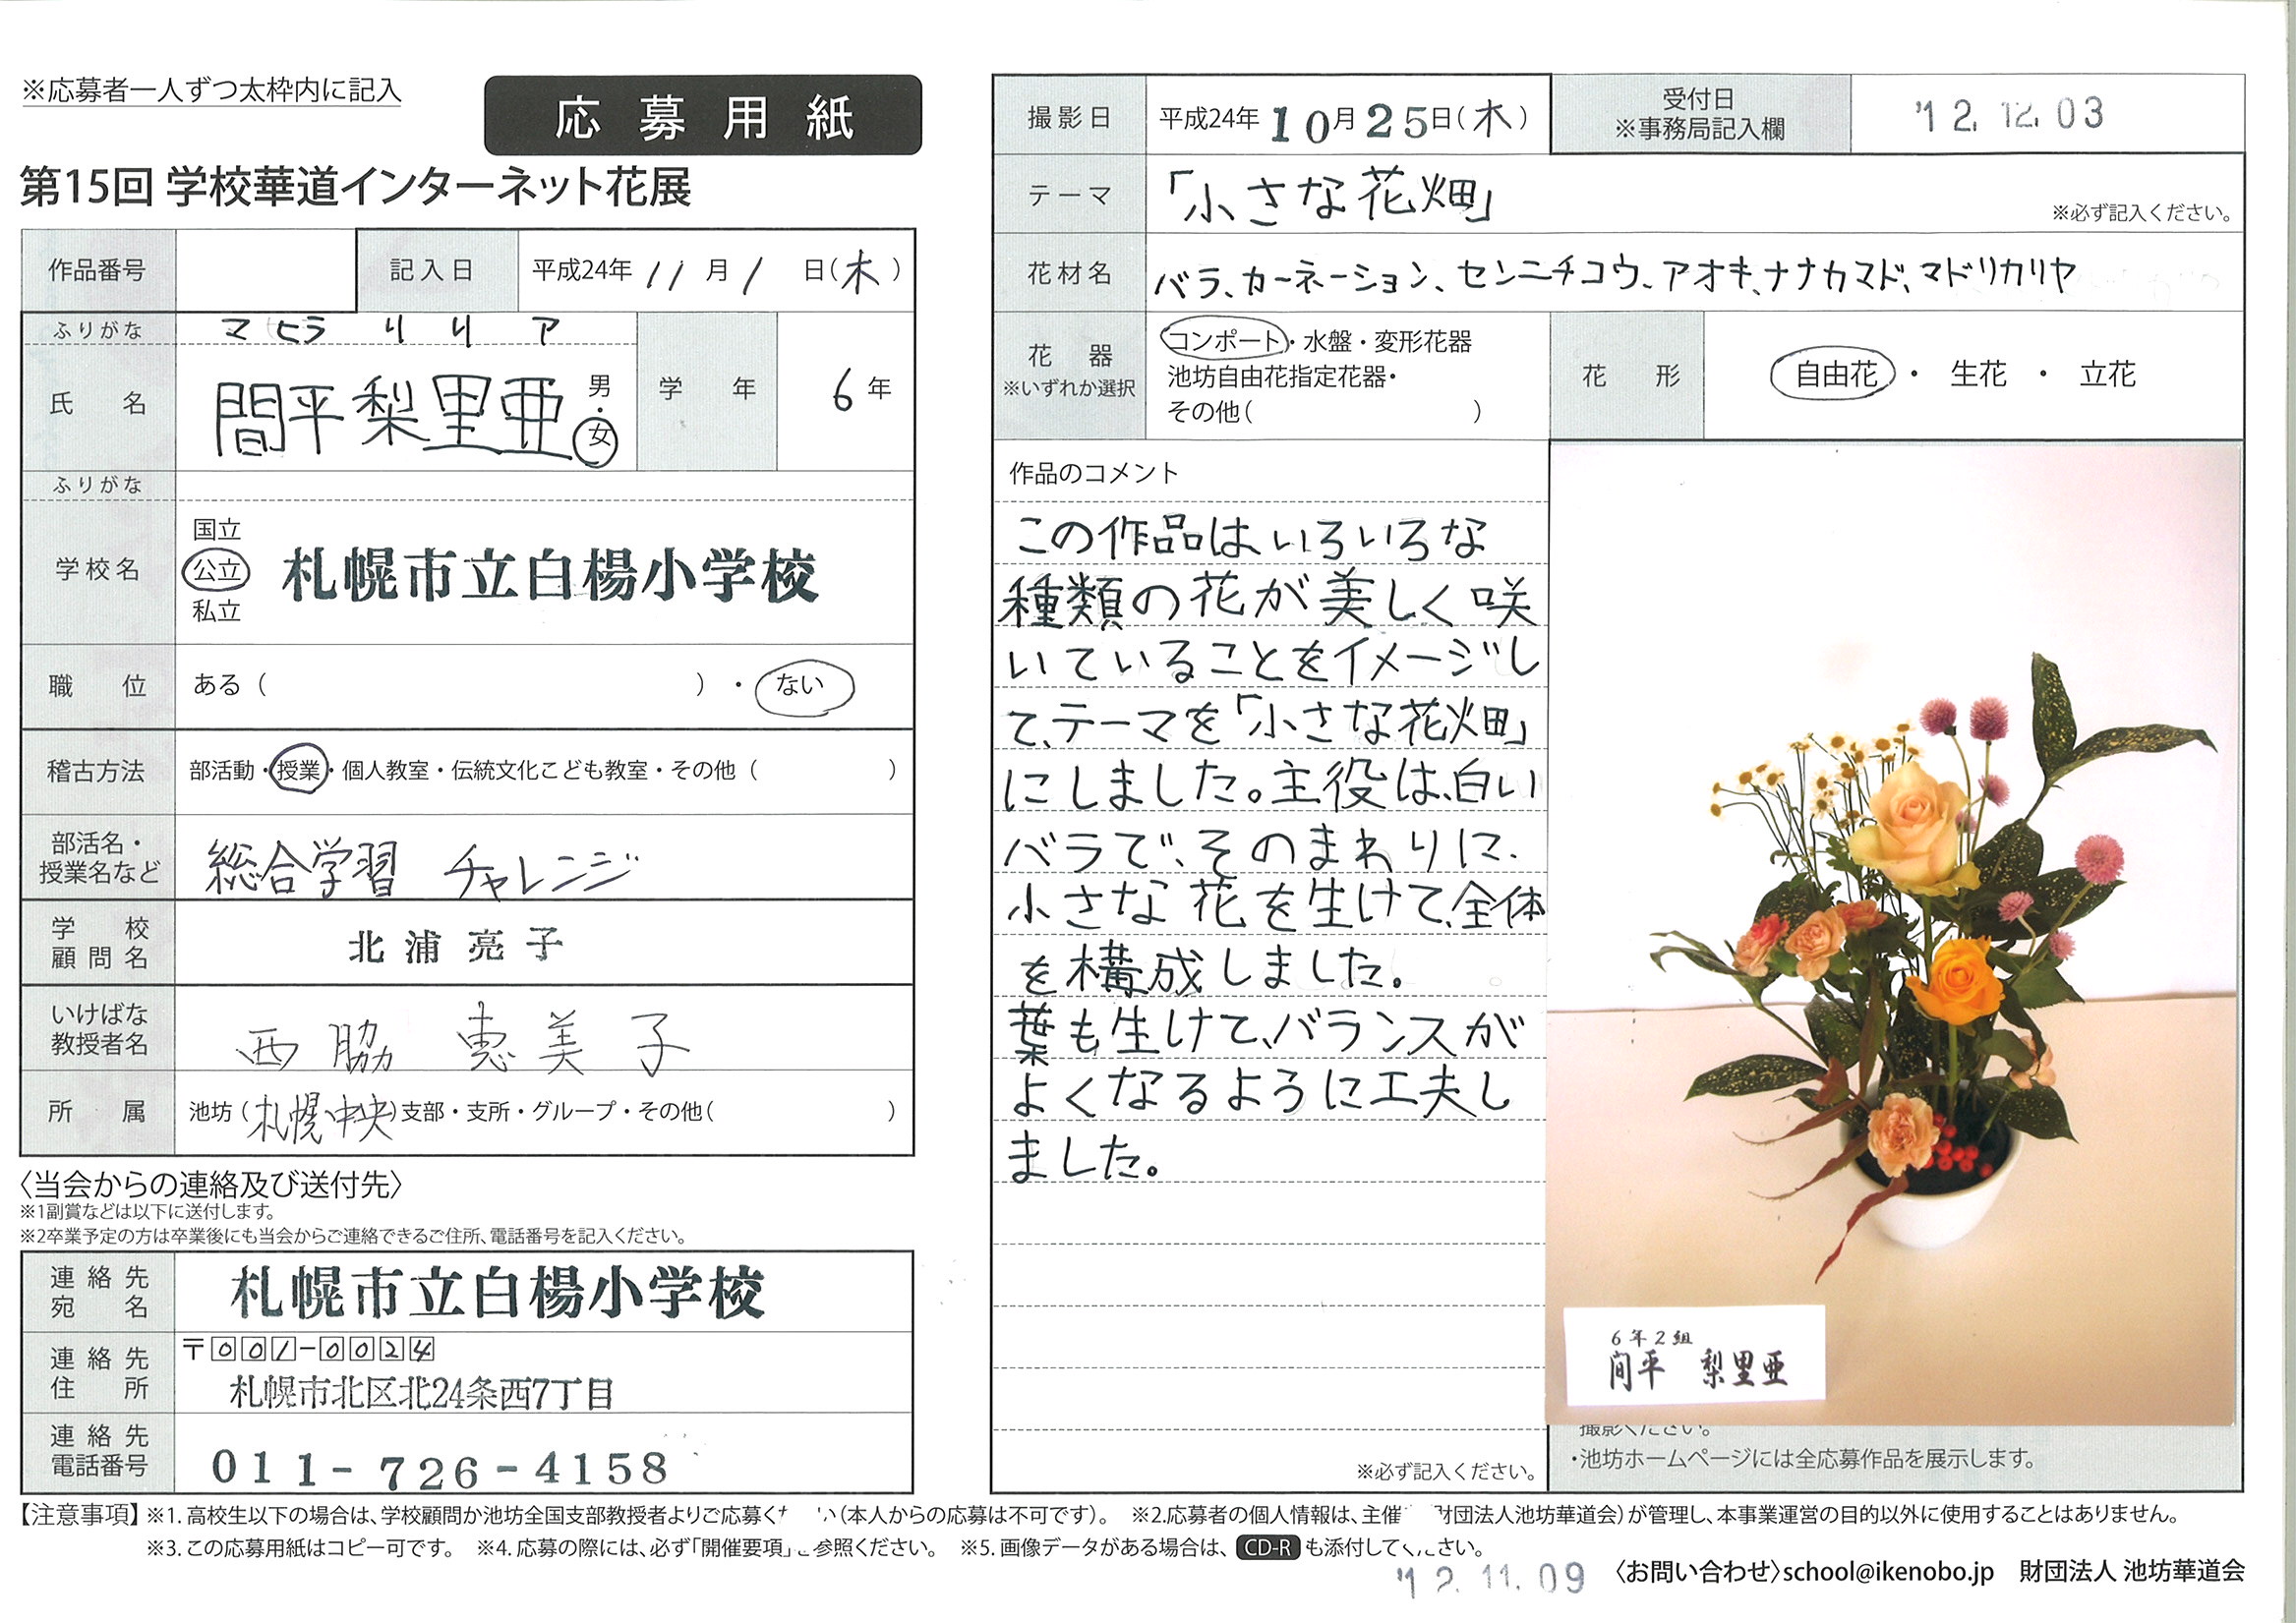 ※応募者一人ずつ太枠内に記入
応募用紙
第15回 学校華道インターネット花展
作品番号
記入日 平成24年 11月 1日(木)
ふりがな マヒラ リリア
氏名 間平梨里亜 男・女
学年 6年
ふりがな
学校名 国立 公立 私立 札幌市立白楊小学校
職位 ある( )・ない
稽古方法 部活動・授業・個人教室・伝統文化こども教室・その他( )
部活名・授業名など 総合学習 チャレンジ
学校顧問名 北浦亮子
いけばな教授者名 西脇 恵美子
所属 池坊(札幌中央)支部・支所・グループ・その他( )
〈当会からの連絡及び送付先〉
※1副賞などは以下に送付します。
※2卒業予定の方は卒業後にも当会からご連絡できるご住所、電話番号を記入ください。
連絡先宛名 札幌市立白楊小学校
連絡先住所 〒001-0024
札幌市北区北24条西7丁目
連絡先電話番号 011-726-4158
撮影日 平成24年 10月25日(木)
受付日 ※事務局記入欄 '12.12.03
テーマ 「小さな花畑」 ※必ず記入ください。
花材名 バラ、カーネーション、センニチコウ、アオキ、ナナカマド、マドリカリヤ
花器 ※いずれか選択 コンポート・水盤・変形花器
池坊自由花指定花器・
その他( )
花形 自由花・生花・立花
作品のコメント
この作品は、いろいろな
種類の花が美しく咲
いていることをイメージし
て、テーマを「小さな花畑」
にしました。主役は、白い
バラで、そのまわりに、
小さな花を生けて、全体
を構成しました。
葉も生けて、バランスが
よくなるように工夫し
ました。
※必ず記入ください。
6年2組
間平 梨里亜
撮影ください。
・池坊ホームページには全応募作品を展示します。
【注意事項】※1.高校生以下の場合は、学校顧問か池坊全国支部教授者よりご応募く い(本人からの応募は不可です)。 ※2.応募者の個人情報は、主催 財団法人池坊華道会)が管理し、本事業運営の目的以外に使用することはありません。
※3.この応募用紙はコピー可です。 ※4.応募の際には、必ず「開催要項」ご参照ください。 ※5.画像データがある場合は、CD-Rも添付してください。
'12.11.09
〈お問い合わせ〉school@ikenobo.jp 財団法人 池坊華道会